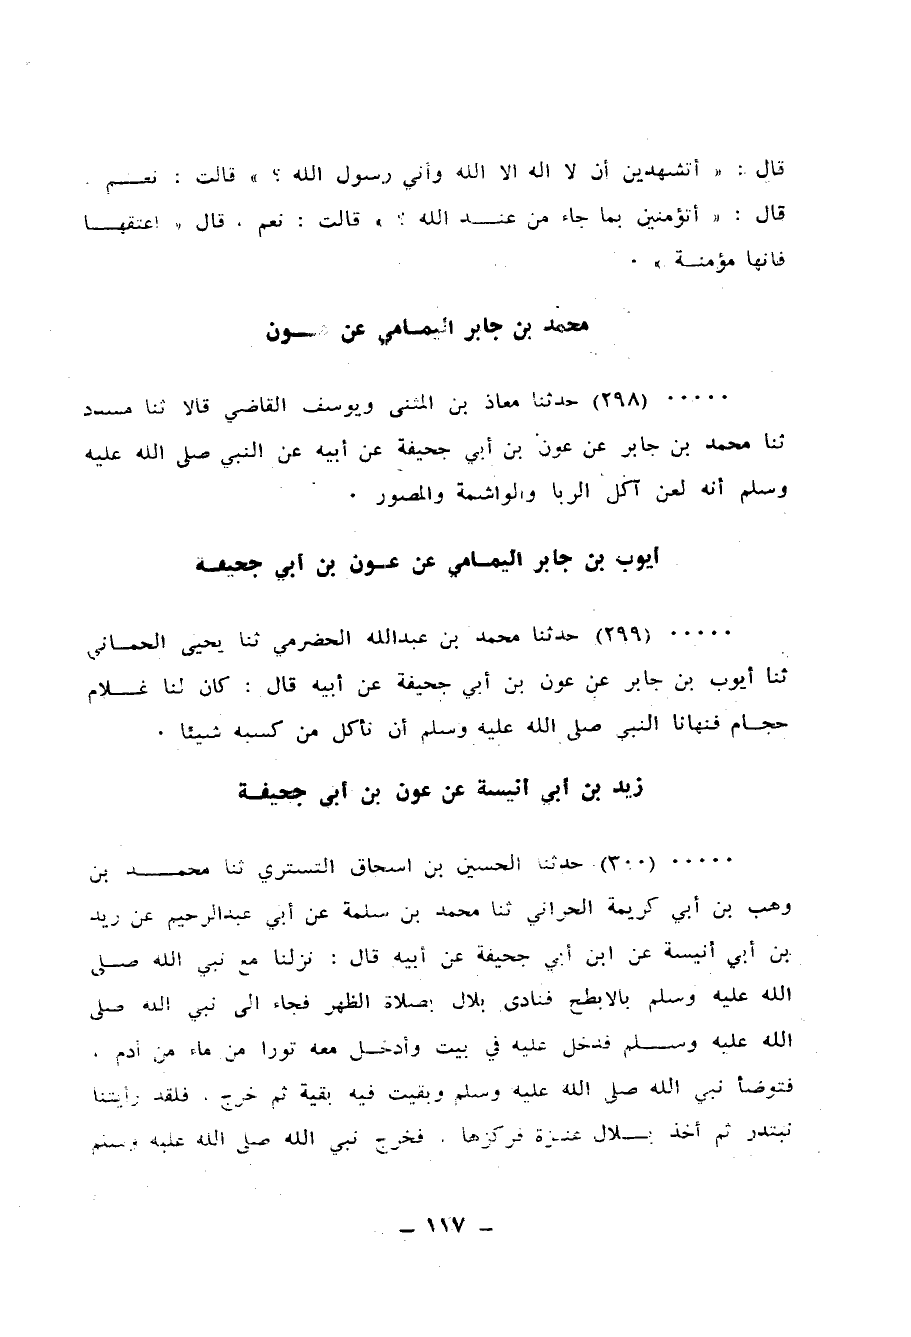 قال : « أتشهدين أن لا اله الا الله وأني رسول الله ؟ » قالت : نعم .
قال : « أتؤمنين بما جاء من عند الله ؟ » قالت : نعم ، قال « اعتقها
فانها مؤمنة » .
محمد بن جابر اليمامي عن عون
..... (٢٩٨) حدثنا معاذ بن المثنى ويوسف القاضي قالا ثنا مسدد
ثنا محمد بن جابر عن عون بن أبي جحيفة عن أبيه عن النبي صلى الله عليه
وسلم أنه لعن آكل الربا والواشمة والمصور .
أيوب بن جابر اليمامي عن عون بن أبي جحيفة
..... (٢٩٩) حدثنا محمد بن عبدالله الحضرمي ثنا يحيى الحماني
ثنا أيوب بن جابر عن عون بن أبي جحيفة عن أبيه قال : كان لنا غلام
حجام فنهانا النبي صلى الله عليه وسلم أن نأكل من كسبه شيئا .
زيد بن أبي أنيسة عن عون بن أبي جحيفة
..... (٣٠٠) حدثنا الحسين بن اسحاق التستري ثنا محمد بن
وهب بن أبي كريمة الحراني ثنا محمد بن سلمة عن أبي عبدالرحيم عن زيد
بن أبي أنيسة عن ابن أبي جحيفة عن أبيه قال : نزلنا مع نبي الله صلى
الله عليه وسلم بالابطح فنادى بلال بصلاة الظهر فجاء الى نبي الله صلى
الله عليه وسلم فدخل عليه في بيت وأدخل معه تورا من ماء من أدم ،
فتوضأ نبي الله صلى الله عليه وسلم وبقيت فيه بقية ثم خرج ، فلقد رأيتنا
نبتدر ثم أخذ بلال عنزة فركزها ، فخرج نبي الله صلى الله عليه وسلم
ـ ١١٧ ـ